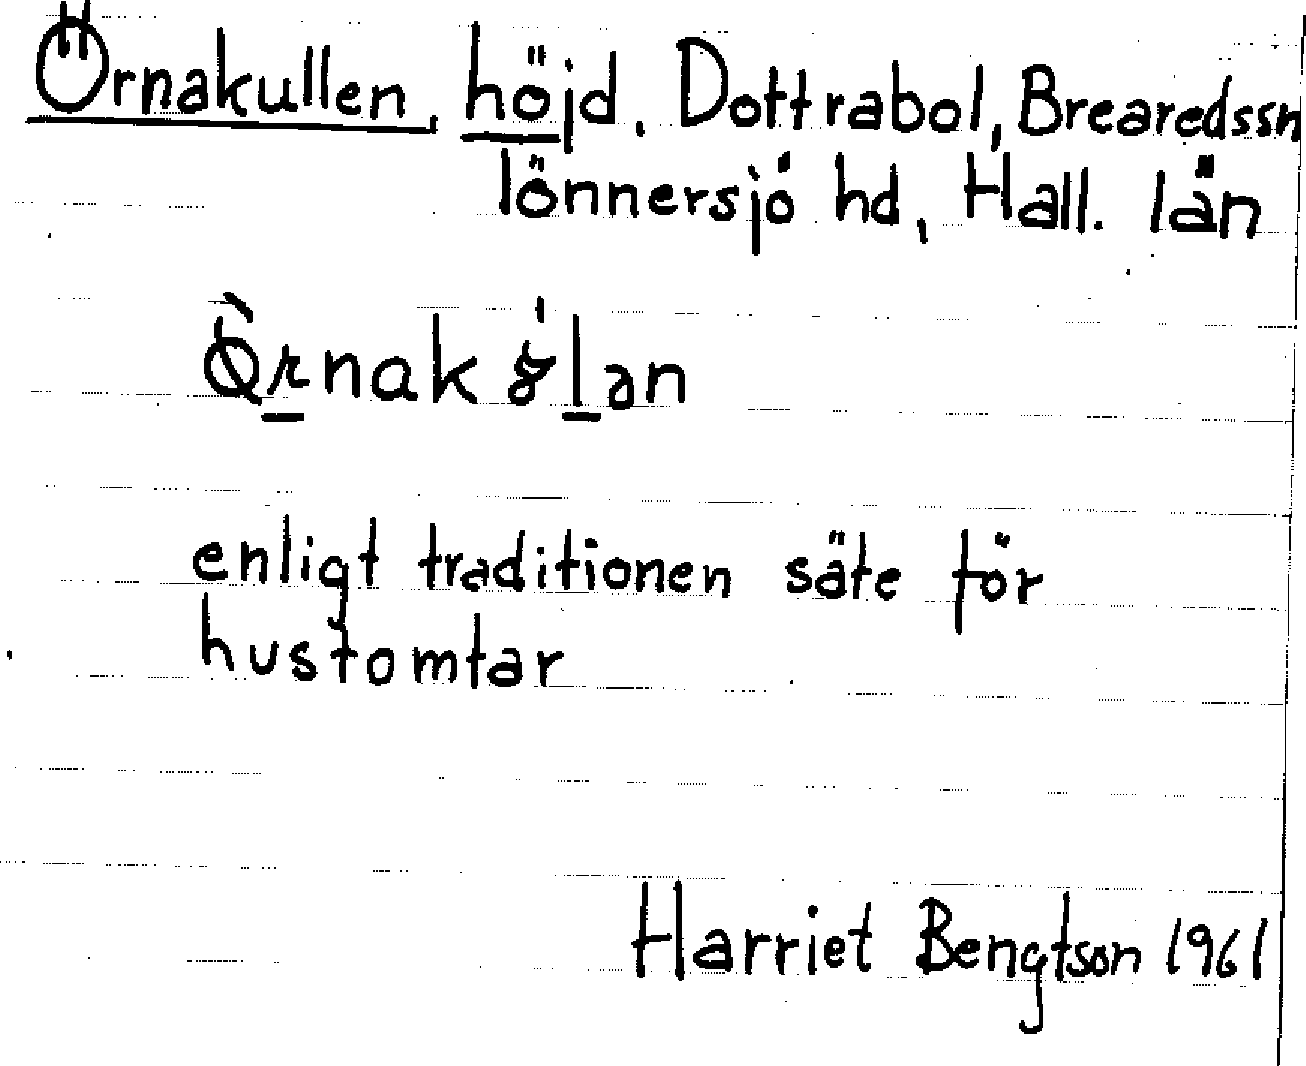 Örnakullen, höjd, Dottrabol, Brearedssn
lönnersjö hd, Hall. län
enligt traditionen säte för
hustomtar
Harriet Bengtson 1961